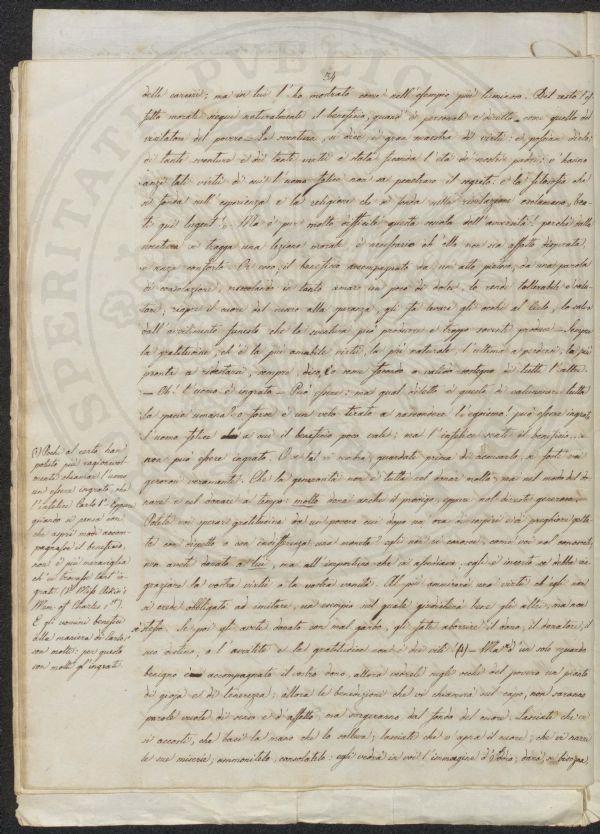 34
delle carceri; ma in lui l'ho mostrato come nell'esempio più luminoso. Del resto l'ef-
fetto morale segue naturalmente il beneficio, quand'è personale e diretto, come quello del
visitatore del povero. — La sventura, si dice, è gran maestra di virtù: e
di tante sventure e di tanti virtù è stata feconda l'età de' nostri padri: v'hanno
anzi tali virtù di cui l'uomo felice non sa penetrare il segreto. e la filosofia che
si fonda sull'esperienza e la religione che si fonda sulla rivelazione esclamano, bea-
ti qui lugent! Ma è pur molto difficile questa scuola dell'avversità! perchè dalla
sventura si tragga una lezione morale, è necessario ch'ella non sia affatto disperata
e senza conforto. Or ecco, il beneficio accompagnato da un atto pietoso, da una parola
di consolazione, mescolando in tanto amaro un poco di dolce, lo rende tollerabile e salu-
tare, riapre il cuore del misero alla speranza, gli fa levare gli occhi al Cielo, lo salva
dall'avvilimento funesto che la sventura può produrre e troppo sovente produce. — Sempre
la gratitudine, ch'è la più amabile virtù, la più naturale, l'ultima a perdersi, la più
pronta a ridestarsi, sempre, dico, è come fecondo e valido sostegno di tutte l'altre.
— Oh! l'uomo è ingrato — Può essere: ma qual diletto è questo di calunniare tutta
la specie umana? o forse è un velo tirato a nascondere l'egoismo? può essere ingrato
l'uomo felice a cui il beneficio poco vale; ma l'infelice sente il beneficio, e
non può essere ingrato. O se tal vi sembra, guardate prima di accusarlo, se foste voi
generosi veramente. Chè la generosità non è tutta nel donar molto; ma nel modo del do-
nare e nel donare a tempo: molto dona anche il prodigo, eppure nol direste generoso.
Potete voi sperar gratitudine da un povero cui dopo un'ora di sospiri e di preghiere getta-
te con dispetto o con indifferenza una moneta? egli non vi conosce, come voi nol conoscete,
non avete donato a lui, ma all'importuno che vi assediava; egli è incerto se debba rin-
graziare la vostra virtù o la vostra vanità. Al più ammirerà una virtù ch'egli non
si crede obbligato ad imitare, un esempio sul quale giudicherà bene gli altri, ma non
sè stesso. Se poi gli avete donato con mal garbo, gli fate aborrire il dono, il donatore, il
suo destino, e l'avvilite e la gratitudine non è dei vili (1) — Ma se d'un solo sguardo
benigno accompagnate il vostro dono, allora vedrete negli occhi del povero un picciolo
di gioja e di tenerezza; allora le benedizioni che vi chiamerà sul capo, non saranno
parole vuote di senso e d'affetto, ma sorgeranno dal fondo del cuore. Lasciate che vi
si accosti, che baci la mano che lo solleva; lasciate che si apra il cuore, che vi narri
le sue miserie; ammonitelo, consolatelo: egli vedrà in voi l'immagine d'Iddio; dovrà, se bisogna
(1) Pochi al certo han
potuto più ragionevol-
mente chiamar l'uomo
un essere ingrato, che
l'infelice Carlo I.° Eppure
quando si pensa con
che aspri modi accom-
pagnasse il beneficio,
non è più meraviglia
ch'ei trovasse tant'in-
grati. (V. Miss Aikin's
Mem. of Charles 1st).
E gli uomini benefici
alla maniera di Carlo I.°
son molti: per questo
son molti gl'ingrati.